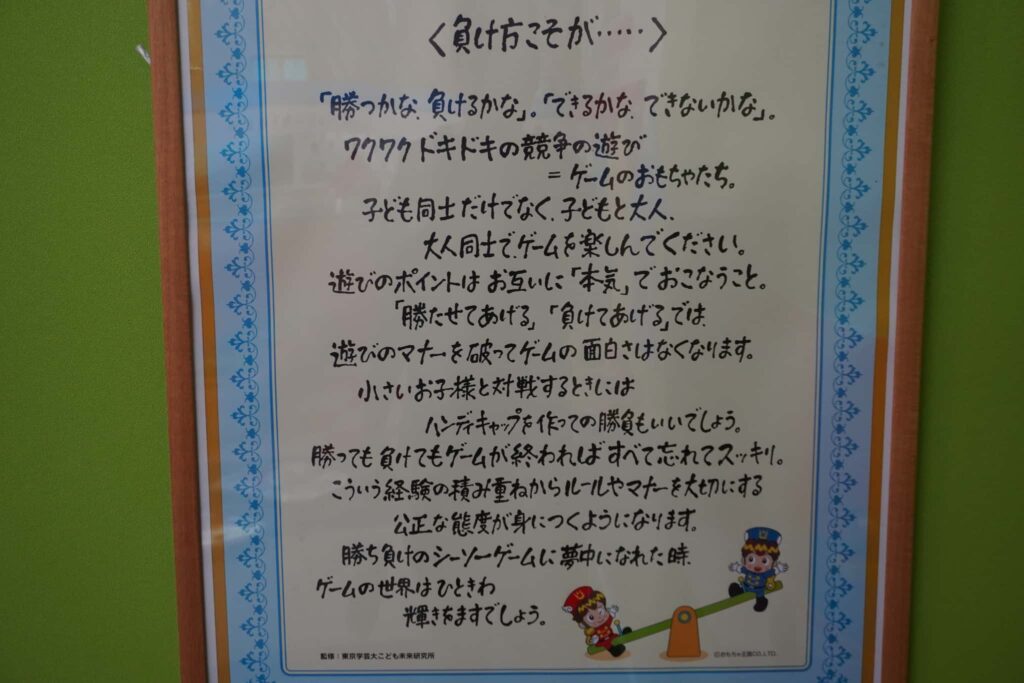 〈負け方こそが……〉
「勝つかな、負けるかな」。「できるかな、できないかな」。
ワクワクドキドキの競争の遊び
＝ゲームのおもちゃたち。
子ども同士だけでなく、子どもと大人、
大人同士で、ゲームを楽しんでください。
遊びのポイントは お互いに「本気」で おこなうこと。
「勝たせてあげる」「負けてあげる」では、
遊びのマナーを破ってゲームの面白さはなくなります。
小さいお子様と対戦するときには
ハンディキャップを作っての勝負もいいでしょう。
勝っても負けてもゲームが終わればすべて忘れてスッキリ。
こういう経験の積み重ねからルールやマナーを大切にする
公正な態度が身につくようになります。
勝ち負けのシーソーゲームに夢中になれた時、
ゲームの世界はひときわ
輝きをますでしょう。
監修：東京学芸大こども未来研究所
©おもちゃ王国CO.,LTD.